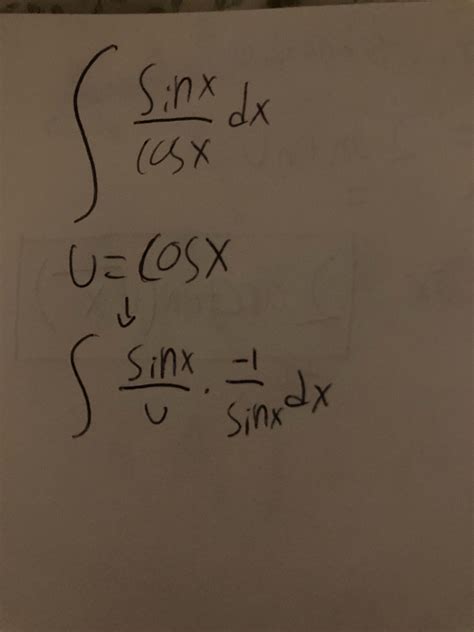 ∫ sinx/cosx dx
U=cosx
↓
∫ sinx/U · -1/sinx dx